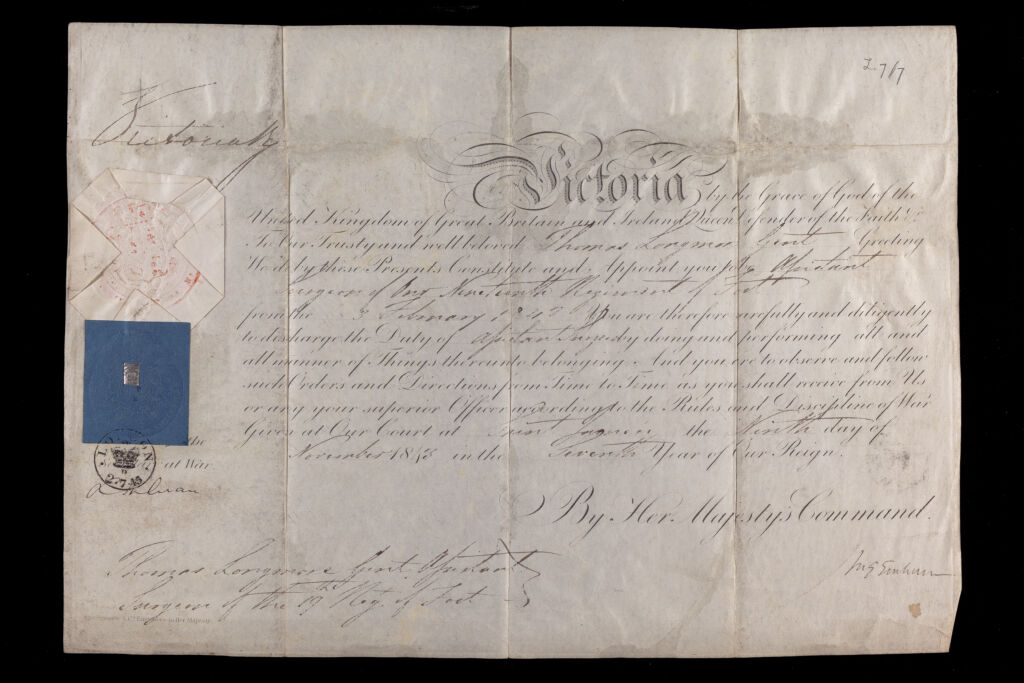 £ 7/7
Victoria R
Victoria by the Grace of God of the
United Kingdom of Great Britain and Ireland Queen Defender of the Faith &c
To Our Trusty and well beloved Thomas Longmore Gent Greeting
We do by these Presents Constitute and Appoint you to be Assistant
Surgeon of Our Nineteenth Regiment of Foot
from the 3 February 1843 You are therefore carefully and diligently
to discharge the Duty of Assistant Surgeon by doing and performing all and
all manner of Things thereunto belonging And you are to observe and follow
such Orders and Directions from Time to Time as you shall receive from Us
or any your superior Officer according to the Rules and Discipline of War
Given at Our Court at Saint James's the Ninth day of
November 1843 in the Seventh Year of Our Reign.
By Her Majesty's Command.
the
at War
LONDON
2.7.43
Thomas Longmore Gent Assistant
Surgeon of the 19th Reg. of Foot
to Her Majesty